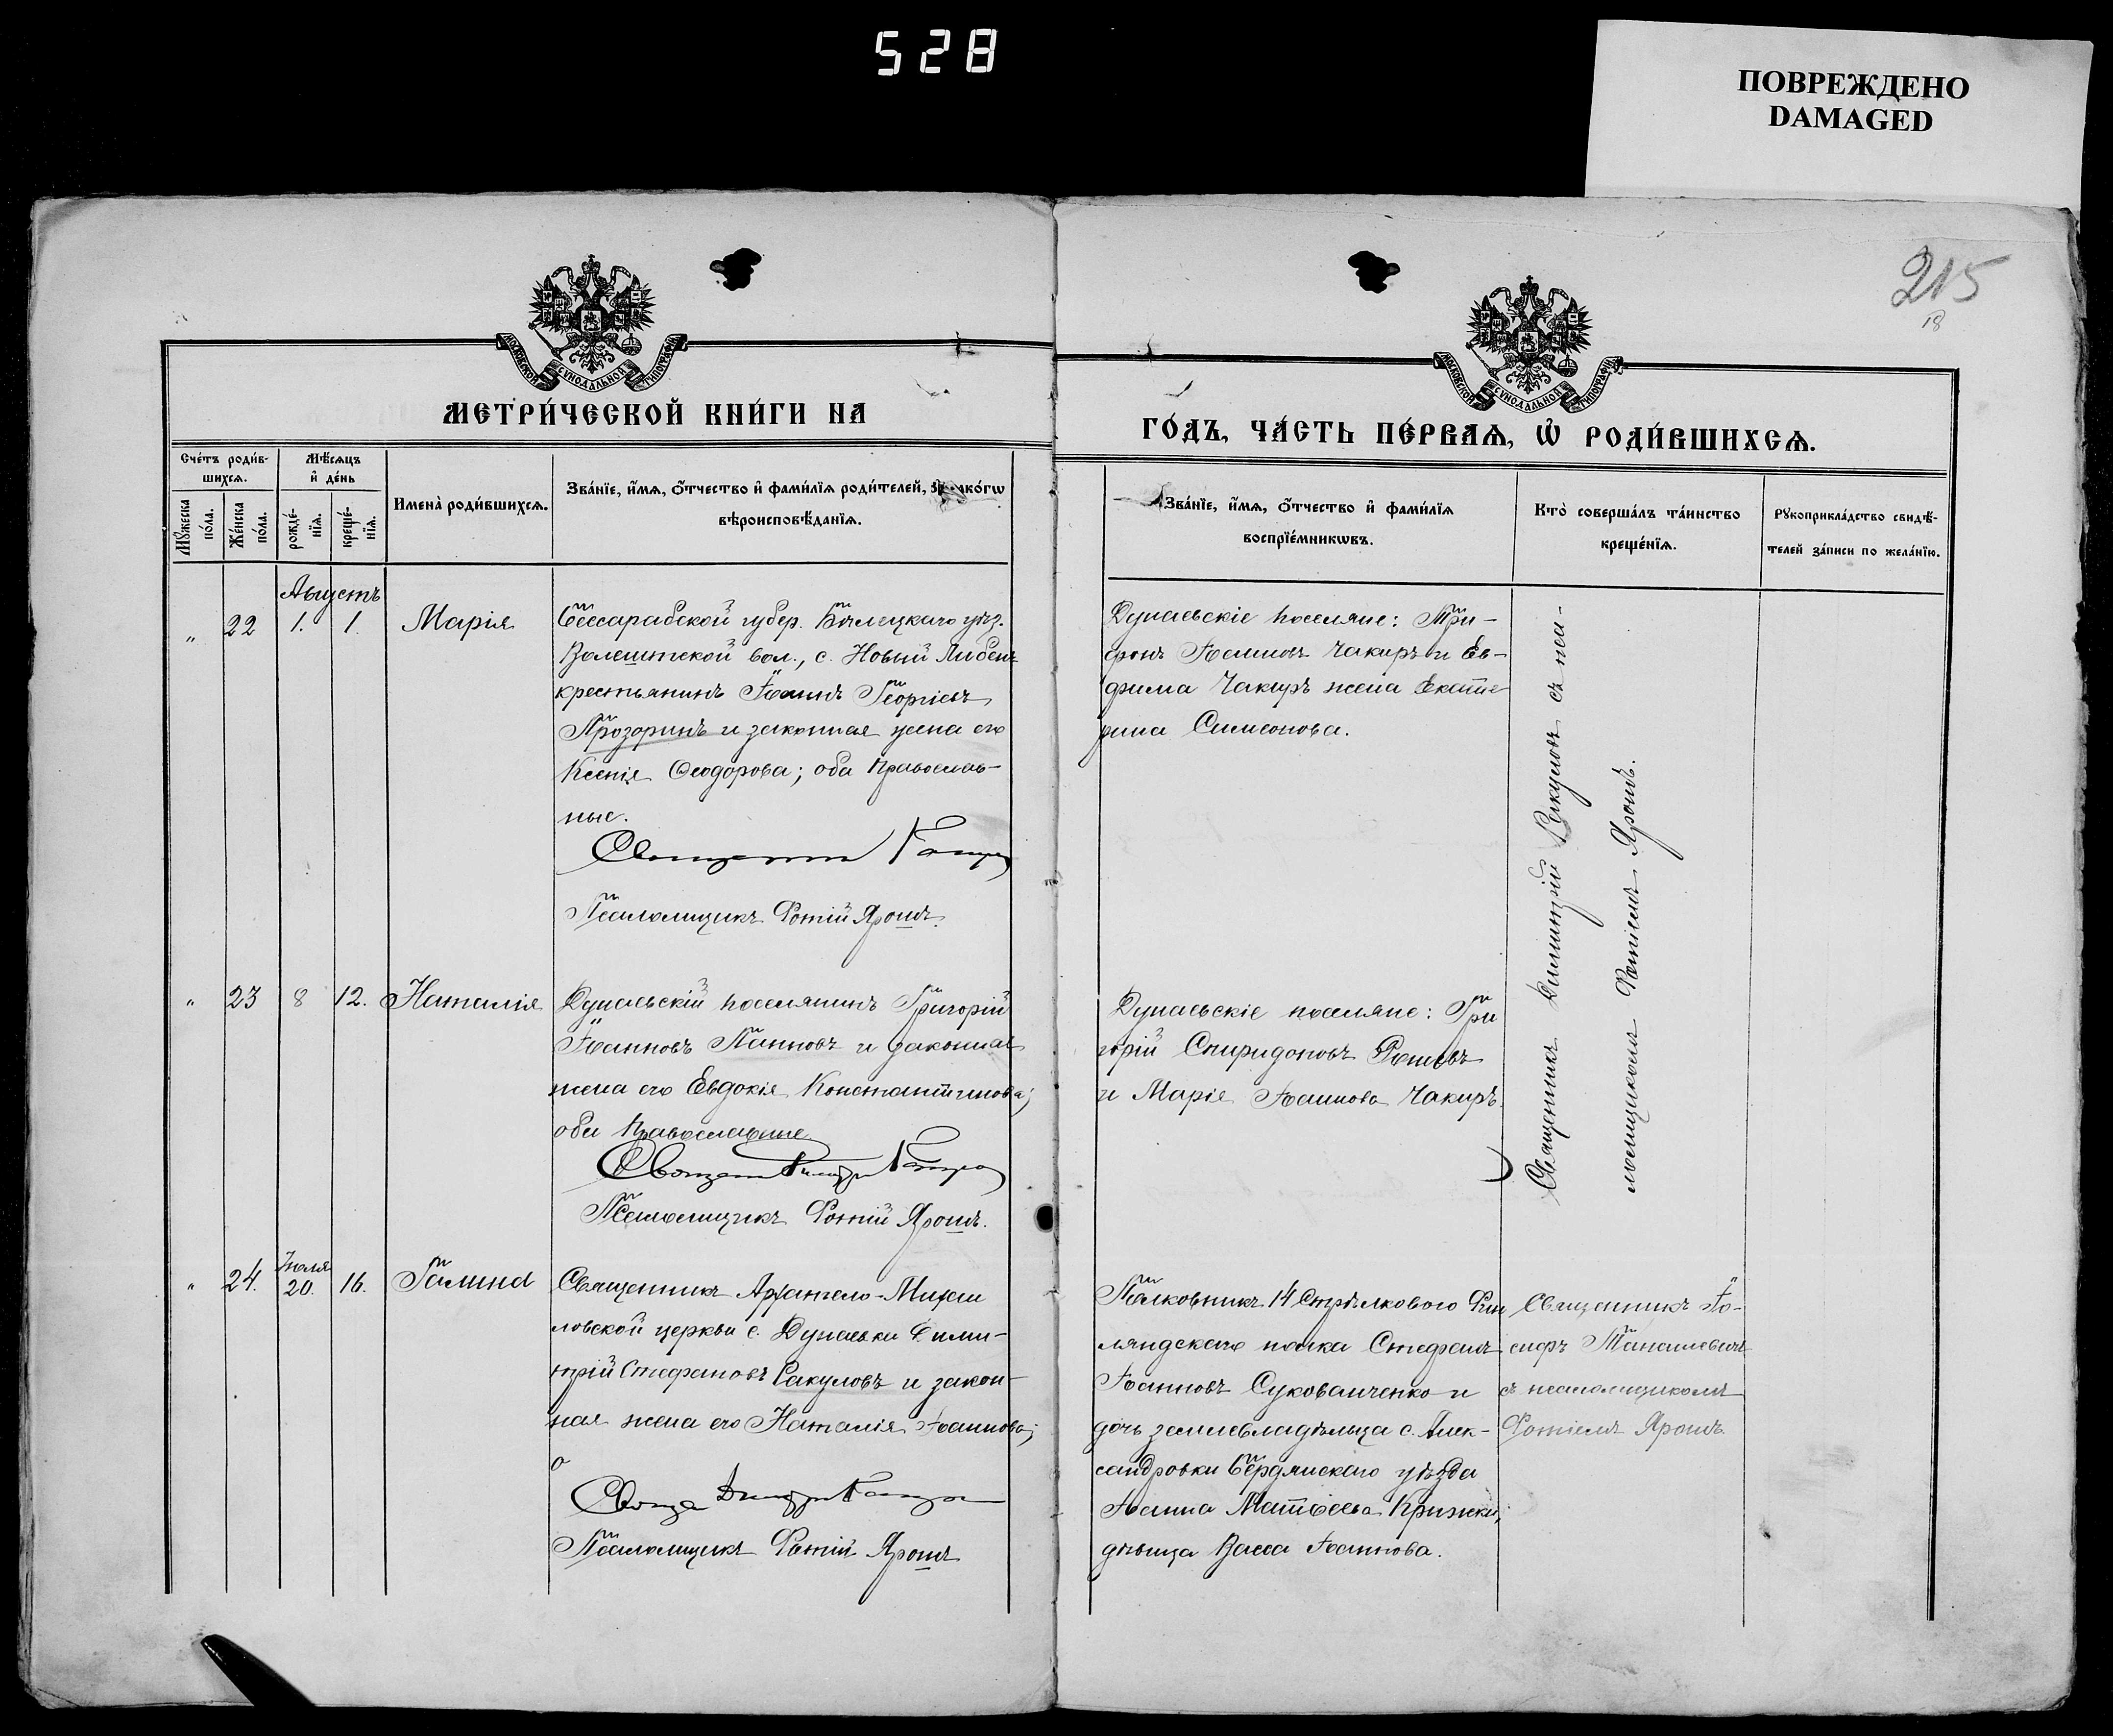 528
ПОВРЕЖДЕНО
DAMAGED
215
18
МОСКОВСКОЙ СѴНОДАЛЬНОЙ ТИПОГРАФІИ
МОСКОВСКОЙ СѴНОДАЛЬНОЙ ТИПОГРАФІИ
МЕТРИ́ЧЕСКОЙ КНИ́ГИ НА
ГО́ДЪ, ЧА́СТЬ ПЕ́РВАѦ, Ѡ҆ РОДИ́ВШИХСѦ.
Сче́тъ роди́в-
шихсѧ.
Мꙋ́жеска
по́ла.
Же́нска
по́ла.
Мѣ́сѧцъ
и҆ де́нь
рожде́-
нїѧ.
креще́-
нїѧ.
Имена̀ роди́вшихсѧ.
Зва́нїе, и҆́мѧ, ѻ҆́тчество и҆ фами́лїѧ роди́телей, и҆ како́гѡ
вѣроисповѣ́данїѧ.
Зва́нїе, и҆́мѧ, ѻ҆́тчество и҆ фами́лїѧ
воспрїе́мникѡвъ.
Кто̀ соверша́лъ та́инство
креще́нїѧ.
Рꙋкоприкла́дство свидѣ́-
телей за́писи по жела́нїю.
Августъ
" 22 1. 1. Марія
Бессарабской губер. Бѣлецкаго уѣз.
вол., с. Новый
крестьянинъ Іоаннъ Георгіевъ
Прозоринъ и законная жена его
Ксенія Ѳеодорова; оба Православ-
ные.
Священникъ
Псаломщикъ Фотій Ярошъ.
Дунаевскіе поселяне: Три-
фонъ Іоанновъ Чакиръ и Ев-
фима Чакиръ жена Екате
рина Симеонова.
Священникъ Димитрій Ракуловъ съ псал-
момщикомъ Фотіемъ Ярошъ.
" 23 8 12. Наталія
Дунаевскій поселянинъ Григорій
Іоанновъ Панновъ и законная
жена его Евдокія Константинова;
оба Православные
Псаломщикъ Фотій Ярошъ.
Дунаевскіе поселяне: Гри
горій Спиридоновъ
и Марія Іоаннова Чакиръ.
" 24. Іюля 20. 16. Галина
Священникъ Архангело-Михаи
ловской церкви с. Дунаевки Дими-
трій Стефановъ Ракуловъ и закон-
ная жена его Наталія Іоаннова;
о
Псаломщикъ Фотій Ярошъ
Полковникъ 14 Стрѣлковаго Фин
ляндскаго полка Стефанъ
Іоанновъ Сукованченко и
дочь землевладѣльца с. Алек-
сандровки Бердянскаго уѣзда
Іоанна Матѳеева Крижки,
дѣвица Васса Іоаннова.
Священникъ Іо-
сифъ Танасевичъ
съ псаломщикомъ
Фотіемъ Ярошъ.